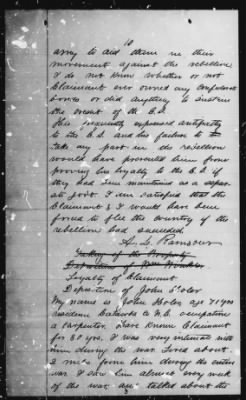 10
army to aid them in their
movement against the rebellion
I do not know whether or not
Claimant ever owned any confederate
bonds or did anything to sustain
the credit of the C.S.
His frequently expressed antipathy
to the C.S. and his failure to
take any part in the rebellion
would have prevented him from
proving his loyalty to the C.S. if
they had been maintained as a separ-
ate govt. I am satisfied that the
Claimant & I would have been
forced to flee the country if the
rebellion had succeeded
A. L. Ramsour
Taking of the Property
Deposition of
Loyalty of Claimant
Deposition of John
My name is John age 71 years
residence Catawba Co N.C. occupation
a carpenter. Have known Claimant
for 30 yrs. I was very intimate with
him during the war. Lived about
2 miles from him during the entire
war. I saw him almost every week
of the war, and talked about the